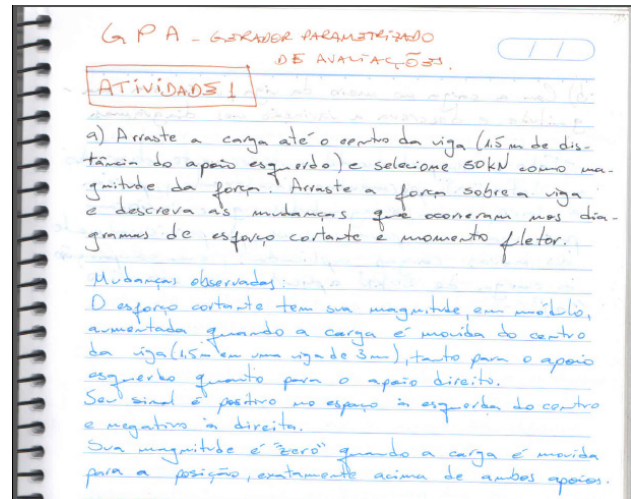 GPA - GERADOR PARAMETRIZADO
DE AVALIAÇÕES.
ATIVIDADE 1
a) Arraste a carga até o centro da viga (1,5 m de dis-
tância do apoio esquerdo) e selecione 50kN como ma-
gnitude da força. Arraste a força sobre a viga
e descreva as mudanças que ocorreram nos dia-
gramas de esforço cortante e momento fletor.
Mudanças observadas:
O esforço cortante tem sua magnitude, em módulo,
aumentada quando a carga é movida do centro
da viga (1,5m em uma viga de 3m), tanto para o apoio
esquerdo quanto para o apoio direito.
Seu sinal é positivo no espaço à esquerda do centro
e negativo à direita.
Sua magnitude é "zero" quando a carga é movida
para a posição, exatamente acima de ambos apoios.